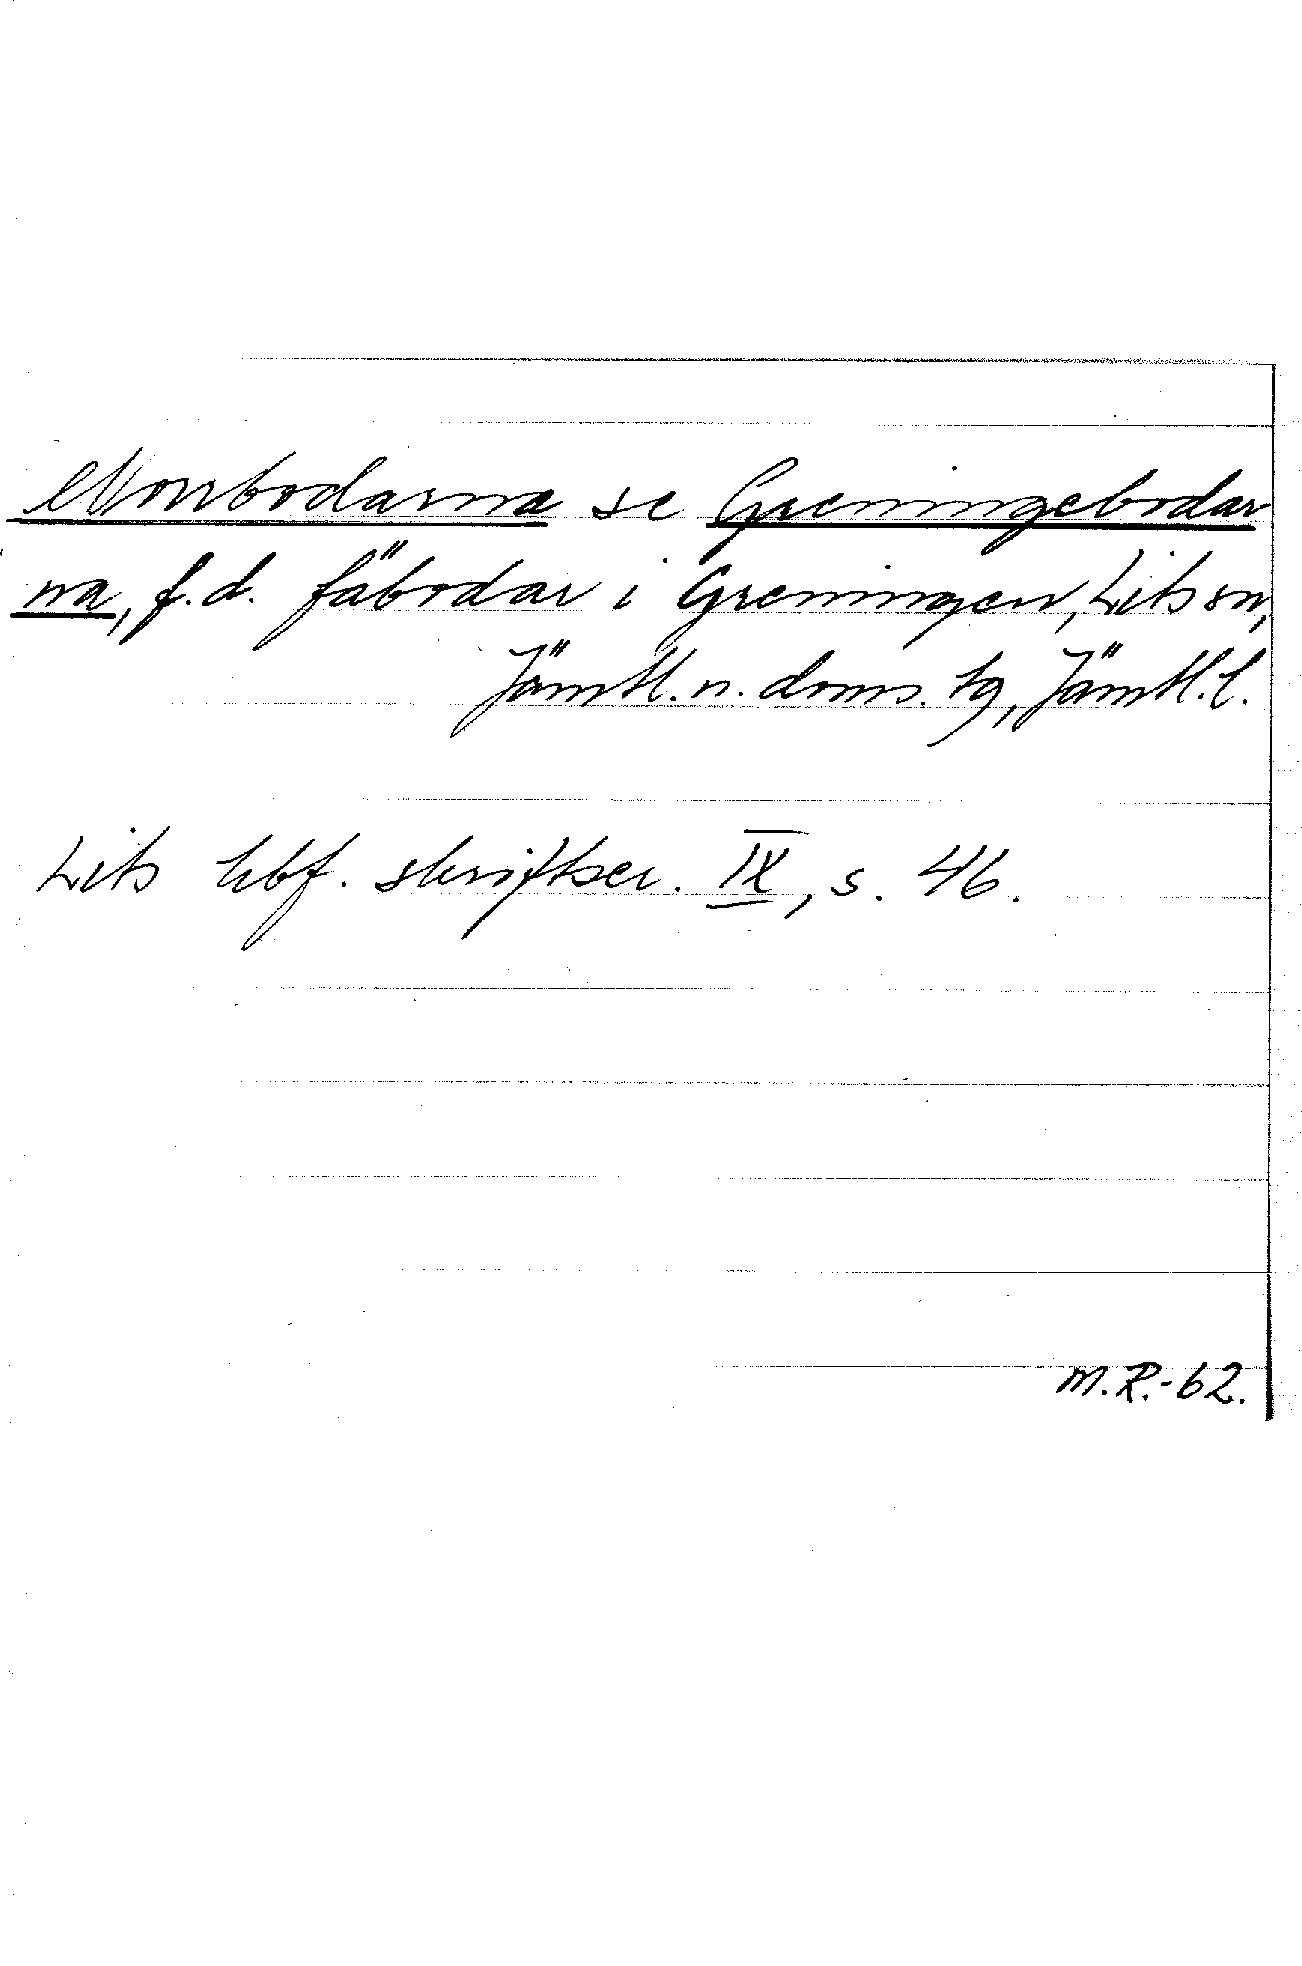 Norrbodarna se Greningebodar
na, f.d. fäbodar i Greningen, Lits sn,
Jämtl. n. doms. tg, Jämtl. l.
Lits hbf. skriftser. IX, s. 46.
M.R.-62.